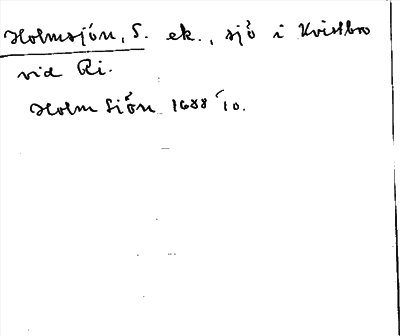 Holmsjön, S. ek., sjö i Kvistbro
vid Ri.
Holm Siön 1688 /10.